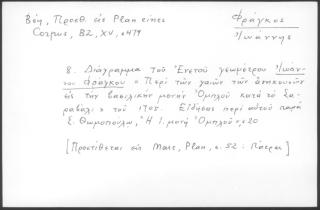 Βέη, Προσθ. εἰς Plan eines
Corpus, BZ, XV, σ 479
Φράγκος
Ἰωάννης
8. Διάγραμμα τοῦ Ἐνετοῦ γεωμέτρου Ἰωάν-
νου Φράγκου "Περὶ τῶν γαιῶν τῶν ἀνηκουσῶν
εἰς τὴν βασιλικὴν μονὴν Ὀμπλοῦ κατὰ τὸ Σα-
ραβάλι" τοῦ 1705. Εἰδήσεις περὶ αὐτοῦ παρὰ
Σ. Θωμοπούλῳ, Ἡ Ἱ. μονὴ Ὀμπλοῦ σ. 20
[Προστίθεται εἰς Marc, Plan, σ. 52 : Πάτραι]